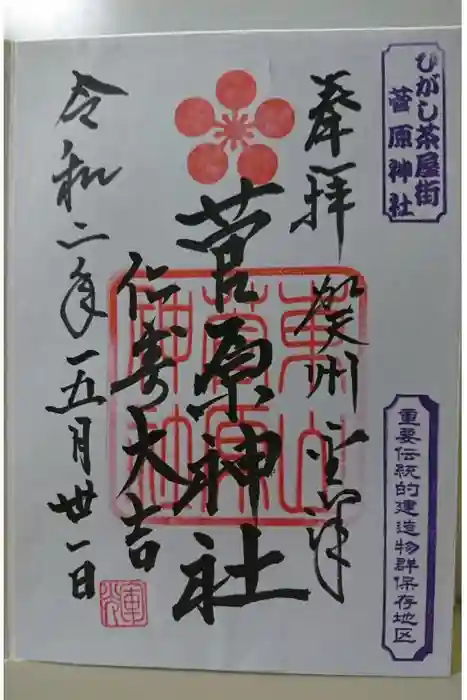 ひがし茶屋街
菅原神社
重要伝統的建造物群保存地区
奉拝
賀州金澤
菅原神社
東山
菅原
神社
仁寿大吉
令和二年五月卅一日